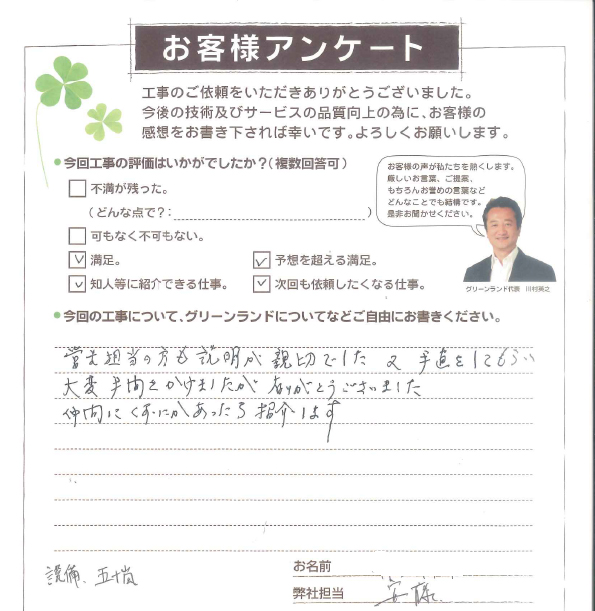 お客様アンケート
工事のご依頼をいただきありがとうございました。
今後の技術及びサービスの品質向上の為に、お客様の
感想をお書き下されば幸いです。よろしくお願いします。
•今回工事の評価はいかがでしたか?(複数回答可)
不満が残った。
(どんな点で?: )
可もなく不可もない。
満足。
予想を超える満足。
知人等に紹介できる仕事。
次回も依頼したくなる仕事。
お客様の声が私たちを熱くします。
厳しいお言葉、ご提案、
もちろんお誉めの言葉など
どんなことでも結構です。
是非お聞かせください。
グリーンランド代表 川村英之
•今回の工事について、グリーンランドについてなどご自由にお書きください。
営業担当の方も説明が親切でした 又 手直をしてもらい
大変手間をかけましたが ありがとうございました
仲間に なにかあったら紹介します
設備、五十嵐
お名前
弊社担当 安藤